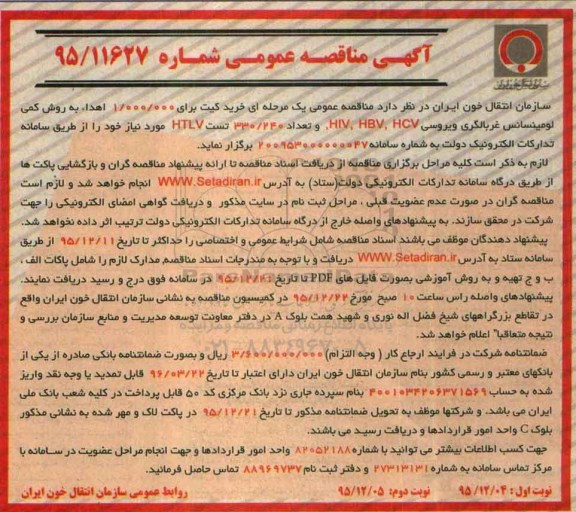 آگهی مناقصه عمومی شماره ۹۵/۱۱۶۲۷
سازمان انتقال خون ایران در نظر دارد مناقصه عمومی یک مرحله ای خرید کیت برای ۱/۰۰۰/۰۰۰ اهدا، به روش کمی
لومینسانس غربالگری ویروسی HIV, HBV, HCV, و تعداد ۳۳۰/۲۴۰ تست HTLV مورد نیاز خود را از طریق سامانه
تدارکات الکترونیک دولت به شماره سامانه ۲۰۰۹۵۳۰۰۰۰۰۰۰۴۷ برگزار نماید.
لازم به ذکر است کلیه مراحل برگزاری مناقصه از دریافت اسناد مناقصه تا ارائه پیشنهاد مناقصه گران و بازگشایی پاکت ها
از طریق درگاه سامانه تدارکات الکترونیکی دولت(ستاد) به آدرس WWW.Setadiran.ir انجام خواهد شد و لازم است
مناقصه گران در صورت عدم عضویت قبلی ، مراحل ثبت نام در سایت مذکور و دریافت گواهی امضای الکترونیکی را جهت
شرکت در محقق سازند. به پیشنهادهای واصله خارج از درگاه سامانه تدارکات الکترونیکی دولت ترتیب اثر داده نخواهد شد.
پیشنهاد دهندگان موظف می باشند اسناد مناقصه شامل شرایط عمومی و اختصاصی را حداکثر تا تاریخ ۹۵/۱۲/۱۱ از طریق
سامانه ستاد به آدرس WWW.Setadiran.ir دریافت و با توجه به مندرجات اسناد مناقصه, مدارک لازم را شامل پاکات الف ،
ب و ج تهیه و به روش آموزشی بصورت فایل های PDF تا تاریخ ۹۵/۱۲/۲۱ در سامانه فوق درج و رسید دریافت نمایند.
پیشنهادهای واصله راس ساعت ۱۰ صبح مورخ ۹۵/۱۲/۲۲ در کمیسیون مناقصه به نشانی سازمان انتقال خون ایران واقع
در تقاطع بزرگراههای شیخ فضل اله نوری و شهید همت بلوک A در دفتر معاونت توسعه مدیریت و منابع سازمان بررسی و
نتیجه متعاقبا" اعلام خواهد شد.
ضمانتنامه شرکت در فرایند ارجاع کار ( وجه التزام) ۳/۶۰۰/۰۰۰/۰۰۰ ریال و بصورت ضمانتنامه بانکی صادره از یکی از
بانکهای معتبر و رسمی کشور بنام سازمان انتقال خون ایران دارای اعتبار تا تاریخ ۹۶/۰۳/۲۲ قابل تمدید یا وجه نقد واریز
شده به حساب ۴۰۰۱۰۳۴۲۰۶۳۷۱۵۶۹ بنام سپرده جاری نزد بانک مرکزی کد ۵۰ قابل پرداخت در کلیه شعب بانک ملی
ایران می باشد. و شرکتها موظف به تحویل ضمانتنامه مذکور تا تاریخ ۹۵/۱۲/۲۱ در پاکت لاک و مهر شده به نشانی مذکور
بلوک C واحد امور قراردادها و دریافت رسید می باشند.
جهت کسب اطلاعات بیشتر می توانید با شماره ۸۲۰۵۲۱۸۸ واحد امور قراردادها و جهت انجام مراحل عضویت در سامانه با
مرکز تماس سامانه به شماره ۲۷۳۱۳۱۳۱ و دفتر ثبت نام ۸۸۹۶۹۷۳۷ تماس حاصل فرمائید.
نوبت اول : ۹۵/۱۲/۰۴ نوبت دوم: ۹۵/۱۲/۰۵ روابط عمومی سازمان انتقال خون ایران